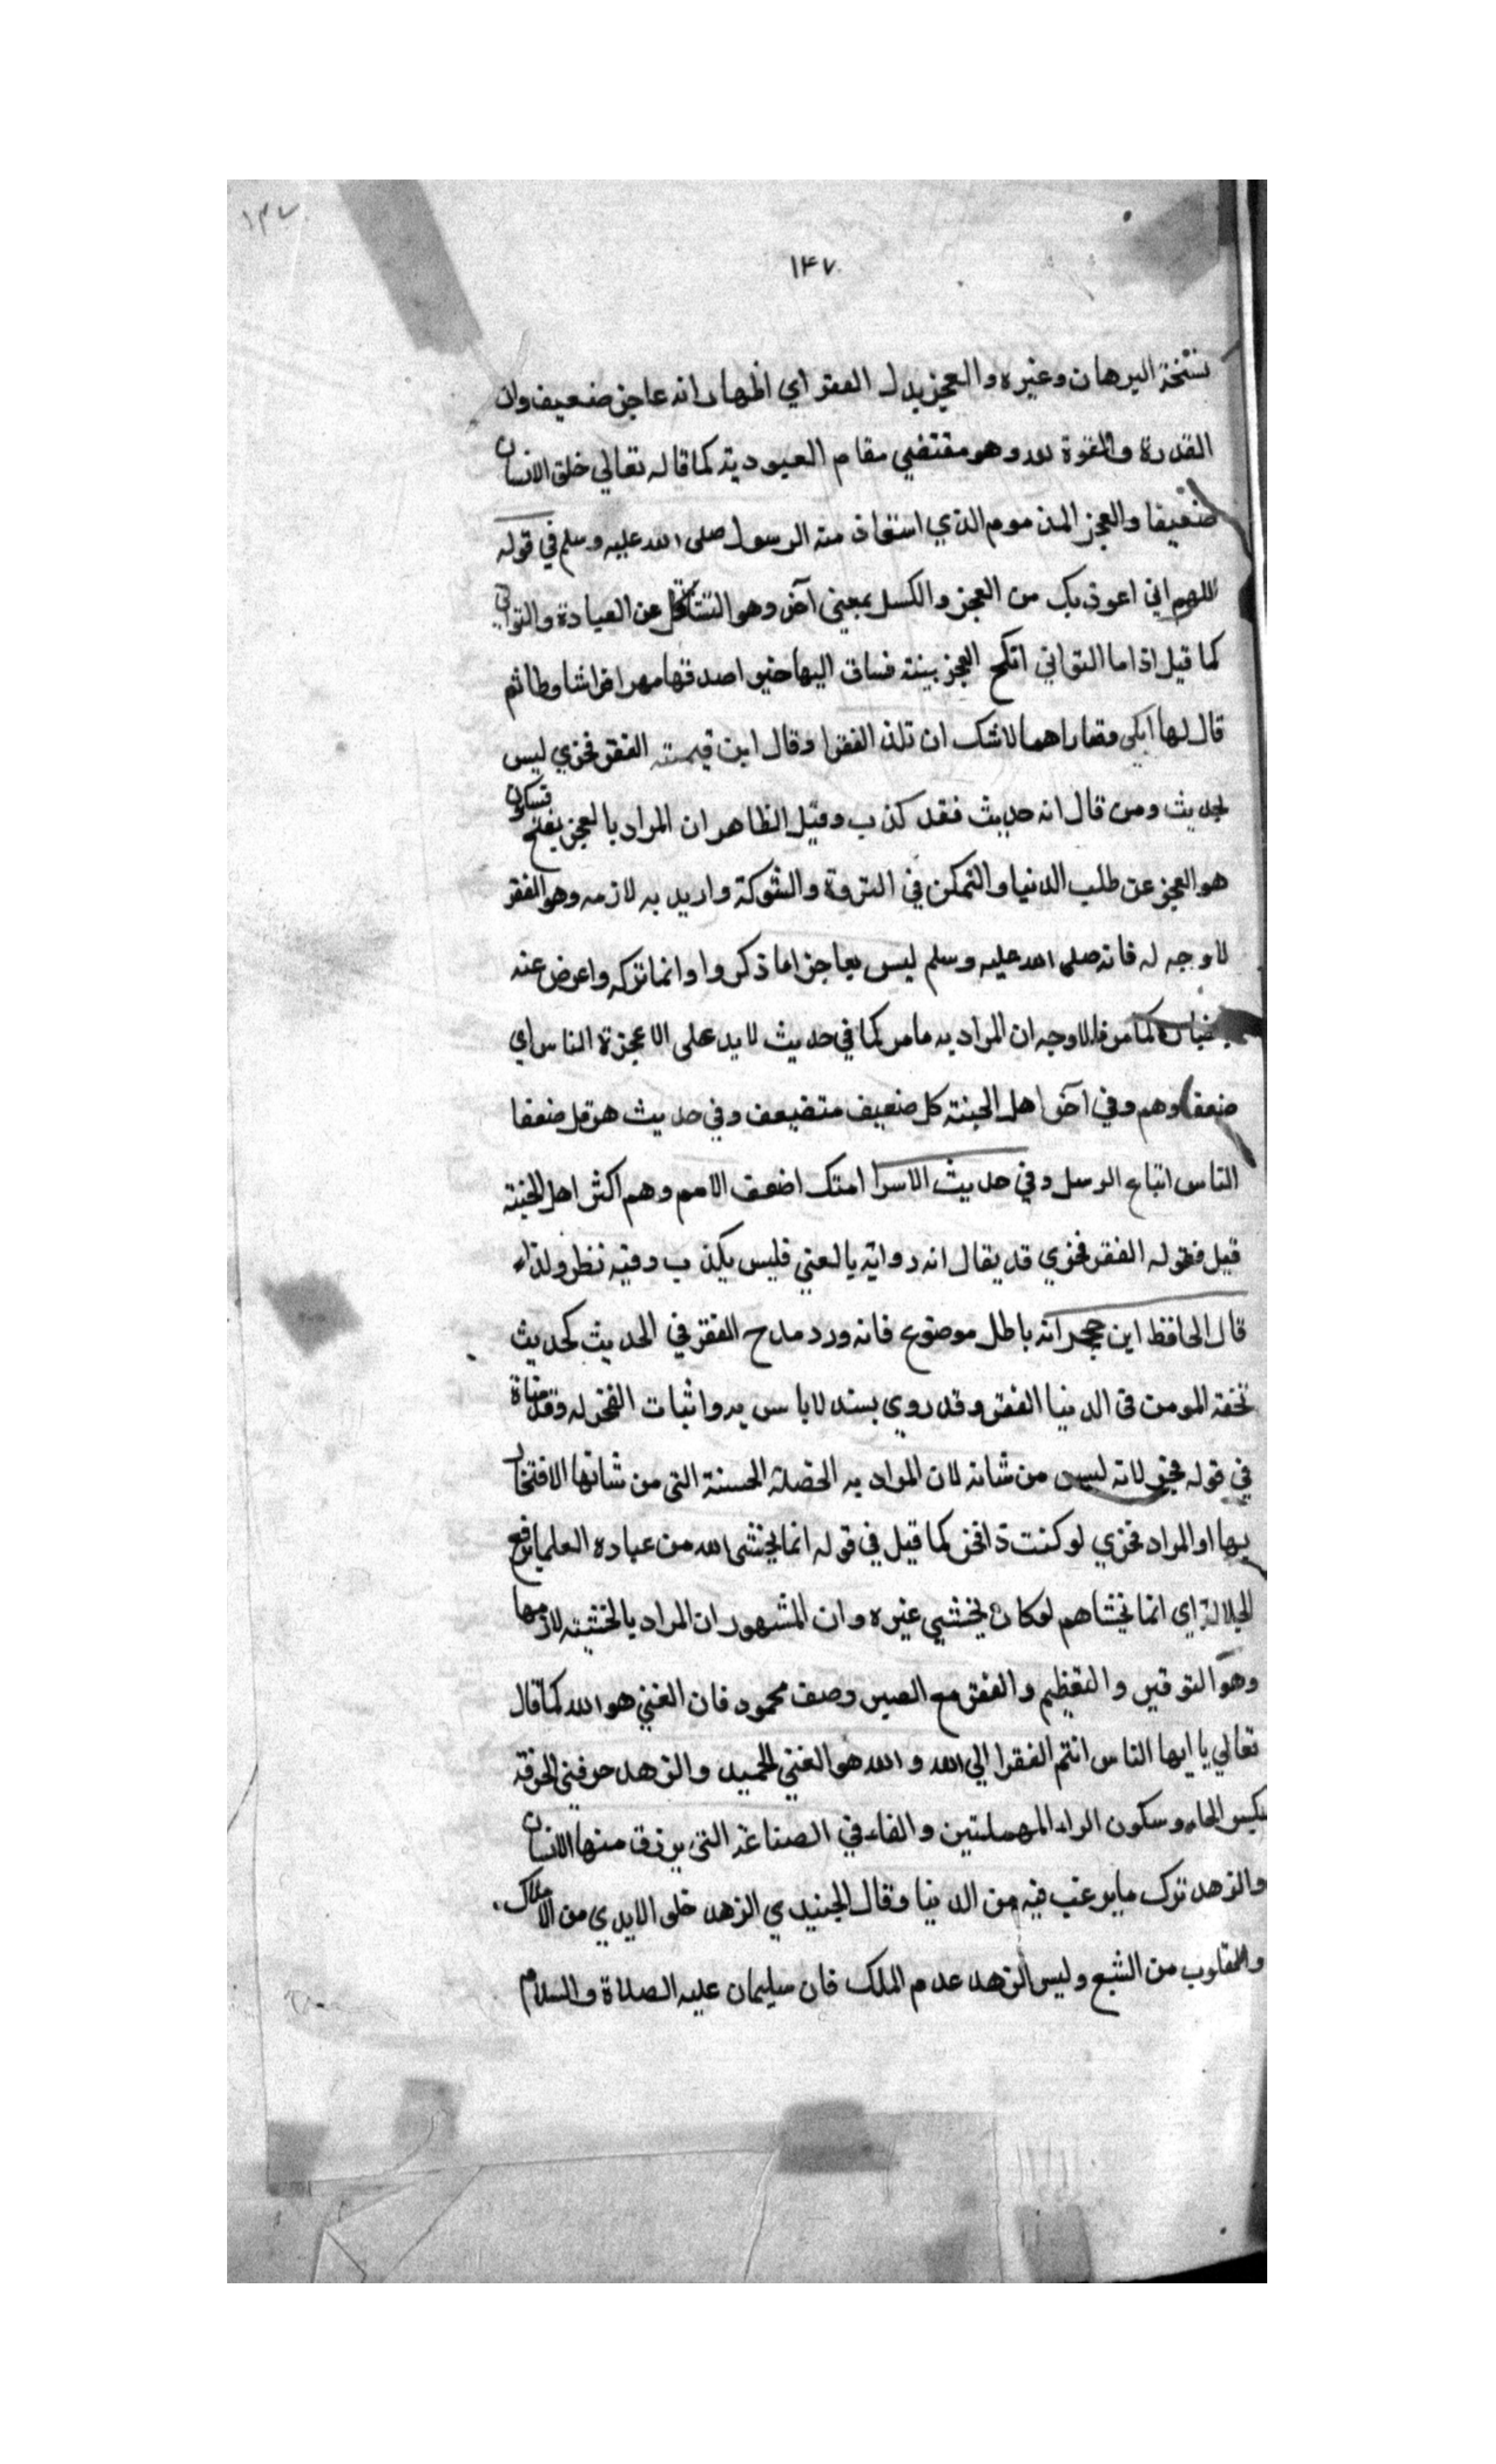 ١٤٧
١٤٧
نسخة البرهان وغيره والعجز بدل الفقر اي اظهار انه عاجز ضعيف وان
القدرة والقوة لله وهو مقتضي مقام العبودية كما قاله تعالي خلق الانسان
ضعيفا والعجز المذموم الذي استعاذ منه الرسول صلى الله عليه وسلم في قوله
اللهم اني اعوذ بك من العجز والكسل بمعني آخر وهو التثاقل عن العبادة والتواني
كما قيل اذا ما التواني انكح العجز بنته فساق اليها حين اصدقها مهرا فراشا وطا ثم
قال لها اتكي فصاراهما لاشك ان تلد الفقرا وقال ابن تيمية الفقر فخري ليس
بحديث ومن قال انه حديث فقد كذب وقيل الظاهر ان المراد بالعجز بفتح فسكون
هو العجز عن طلب الدنيا والتمكن في الثروة والشوكة واريد به لازمه وهو الفقر
لا وجه له فانه صلى الله عليه وسلم ليس بعاجز اما ذكروا وانما تركه واعرض عنه
كما مر فالاوجه ان المراد به مامر كما في حديث لا يدخلني الا عجزة الناس اي
ضعفاوهم وفي آخر اهل الجنة كل ضعيف متضعف وفي حديث هرقل ضعفا
الناس اتباع الرسل وفي حديث الاسرا امتك اضعف الامم وهم اكثر اهل الجنة
قيل فقوله الفقر فخري قد يقال انه رواية بالمعني فليس بكذب وفيه نظر ولذا
قال الحافظ ابن حجر انه باطل موضوع فانه ورد مدح الفقر في الحديث كحديث
تحفة المومن في الدنيا الفقر وقد روي بسند لاباس به واثبات الفخر له وقد
في قوله فخر لانه ليس من شانه لان المراد به الخصلة الحسنة التي من شانها الافتخار
بها او المراد فخري لو كنت ذا فخر كما قيل في قوله انما يخشى الله من عباده العلما برفع
الجلالة اي انما يخشاهم لو كان يخشي غيره وان المشهور ان المراد بالخشية لازمها
وهو التوقير والتعظيم والفقر مع الصبر وصف محمود فان الغني هو الله كما قال
تعالي يا ايها الناس انتم الفقرا الي الله والله هو الغني الحميد والزهد حرفتي الحرفة
بكسر الحاء وسكون الراء المهملتين والفاء في الصناعة التي يرزق منها الانسان
والزهد ترك ما يرغب فيه من الدنيا وقال الجنيدي الزهد خلي الايدي من الاملاك
والقلوب من الشبع وليس الزهد عدم الملك فان سليمان عليه الصلاة والسلام